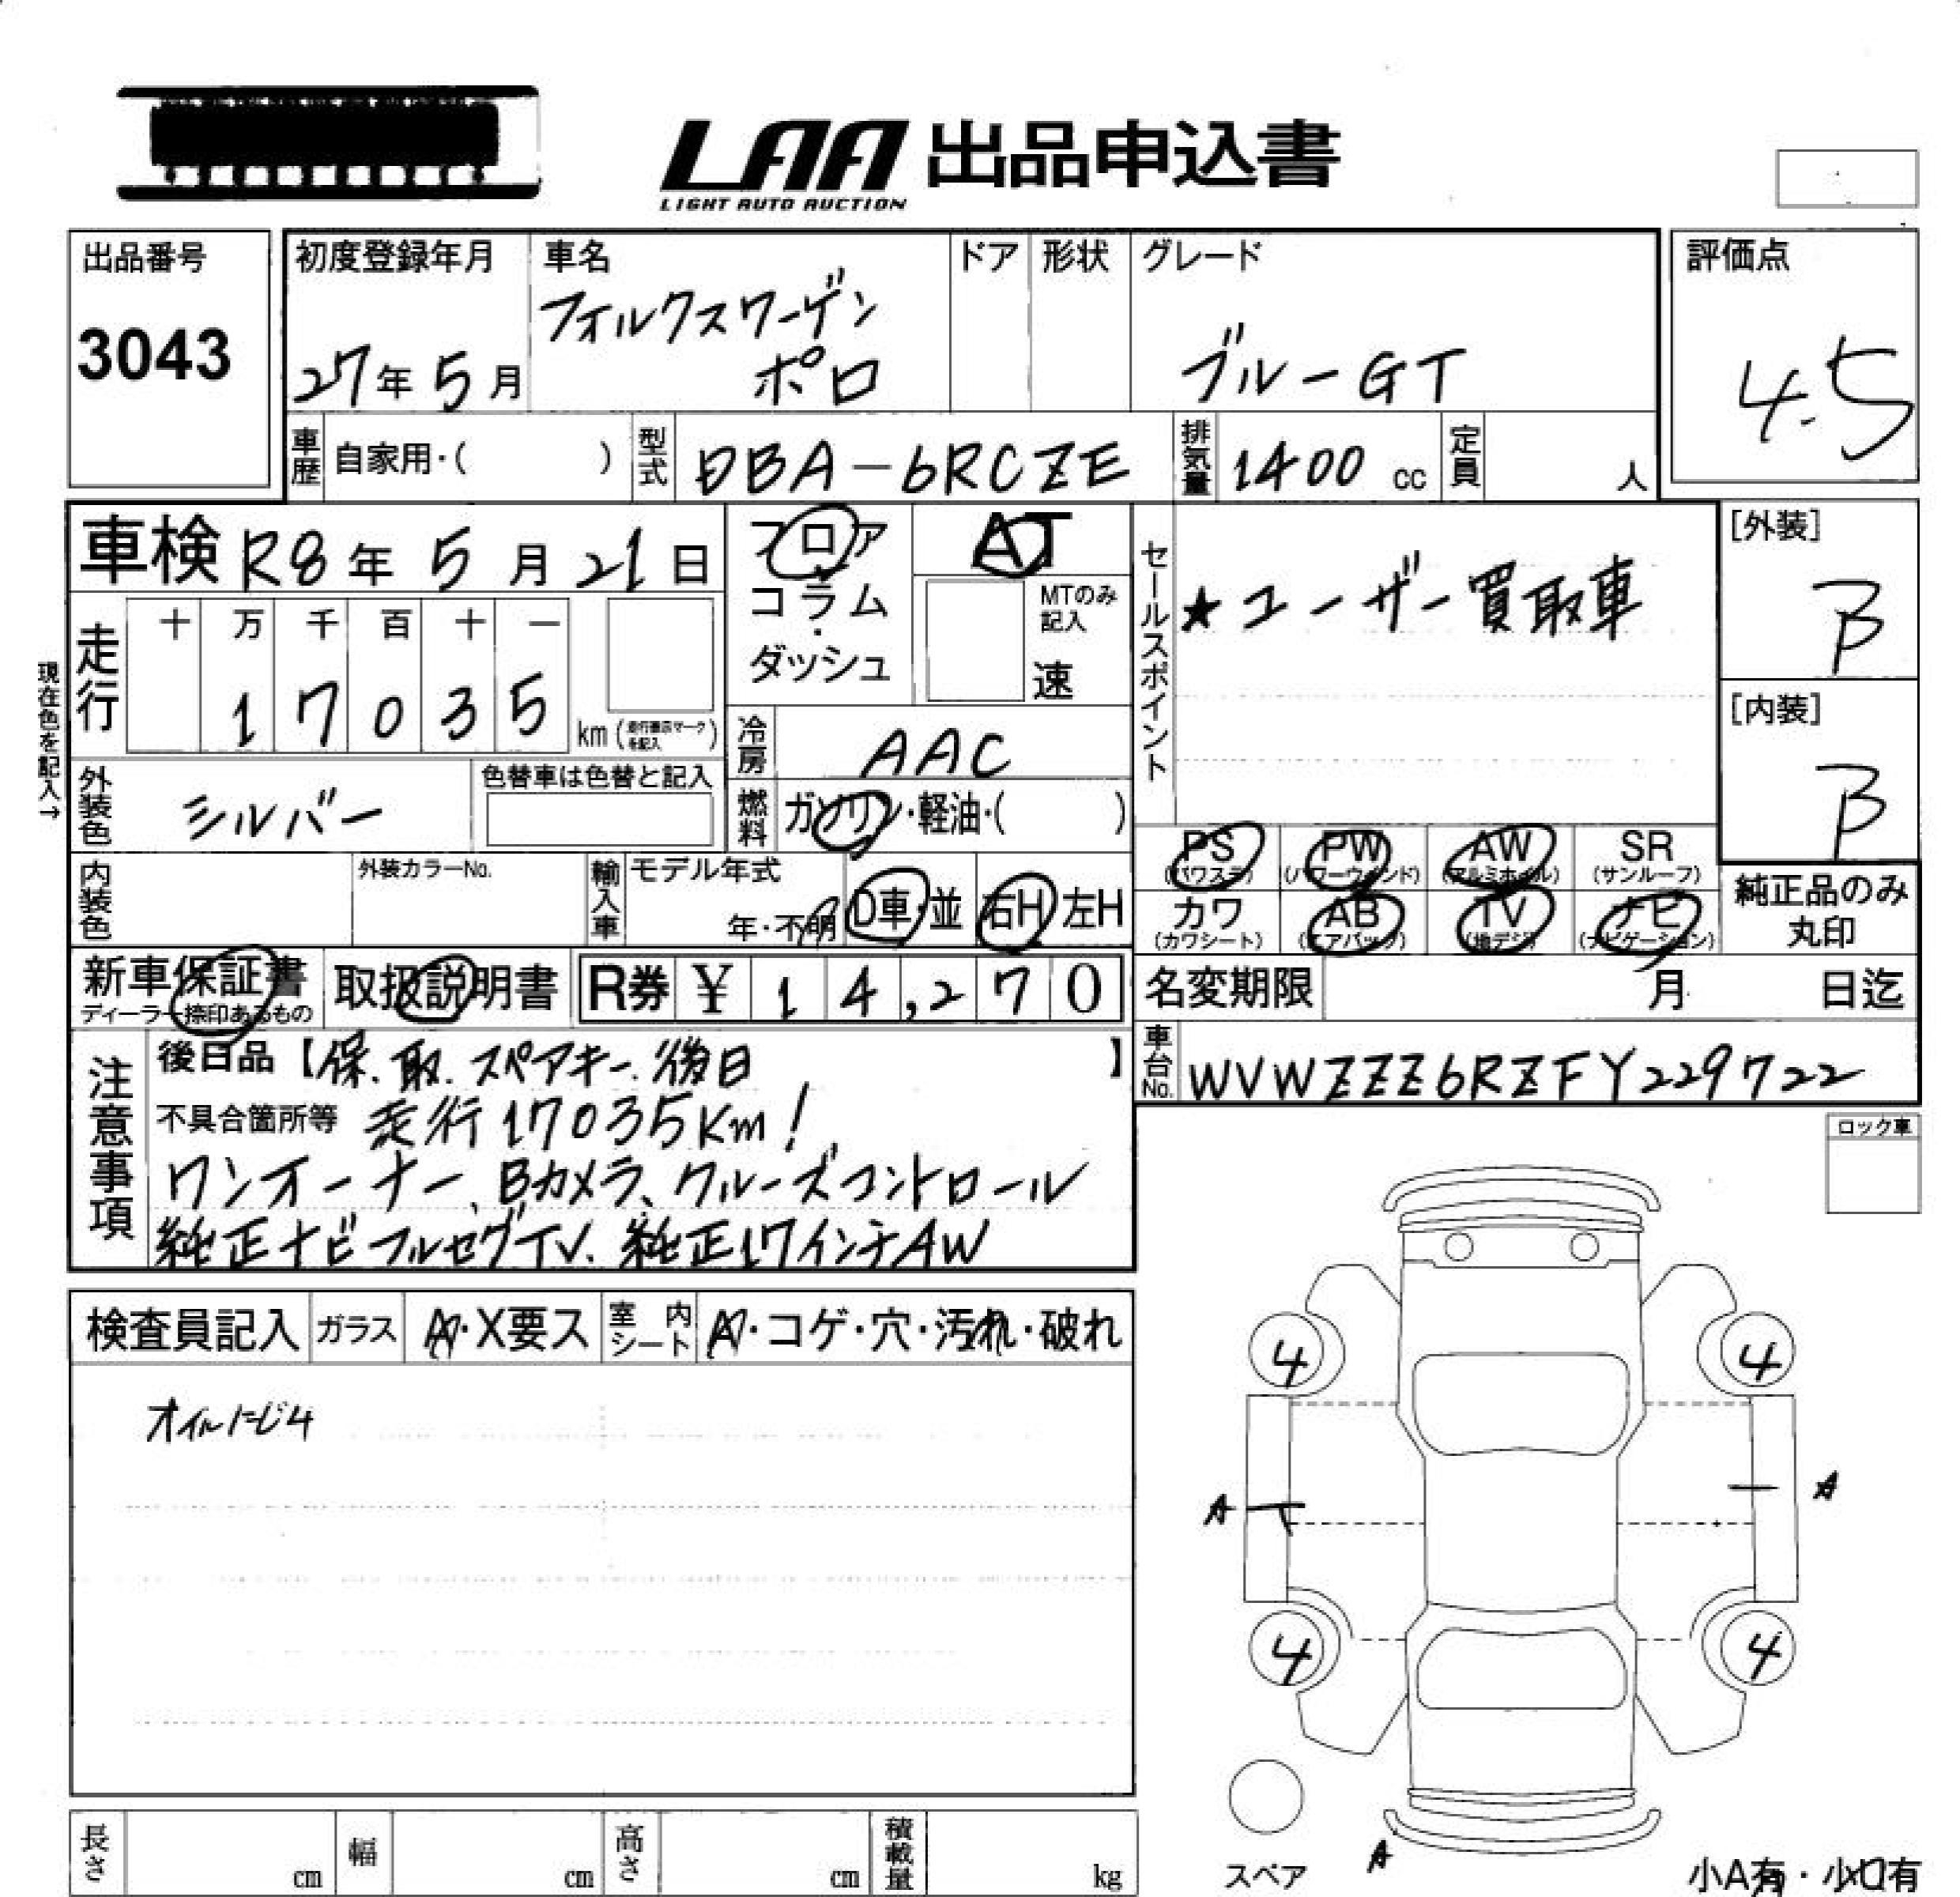 LAA 出品申込書
LIGHT AUTO AUCTION
出品番号
3043
初度登録年月
27年 5月
車名
フォルクスワーゲン
ポロ
ドア
形状
グレード
ブルーGT
評価点
4.5
車歴 自家用・( )
型式 DBA-6RCZE
排気量 1400 cc
定員 人
車検 R8年 5月 21日
フロア
コラム
・
ダッシュ
AT
MTのみ
記入
速
セールスポイント
★ユーザー買取車
[外装]
B
[内装]
B
現在色を記入→
走行
十 万 千 百 十 一
1 7 0 3 5
km (走行表示マークを記入)
冷房 AAC
外装色 シルバー
色替車は色替と記入
燃料 ガソリン・軽油・( )
内装色
外装カラーNo.
輸入車
モデル年式
年・不明
D車・並
右H 左H
PS
(パワステ)
PW
(パワーウインド)
AW
(アルミホイル)
SR
(サンルーフ)
カワ
(カワシート)
AB
(エアバック)
TV
(地デジ)
ナビ
(ナビゲーション)
純正品のみ
丸印
新車保証書
ディーラー捺印あるもの
取扱説明書
R券 ¥ 14,270
名変期限 月 日迄
注意事項
後日品【保.取.スペアキー.後日 】
不具合箇所等 走行17035Km!
ワンオーナー、Bカメラ、クルーズコントロール
純正ナビフルセグTV.純正17インチAW
車台No. WVWZZZ6RZFY229722
ロック車
検査員記入
ガラス
A・X要ス
室内シート
A・コゲ・穴・汚れ・破れ
オイルにじ4
4 4
A A
4 4
スペア
A
小A有・小U有
長さ cm
幅 cm
高さ cm
積載量 kg